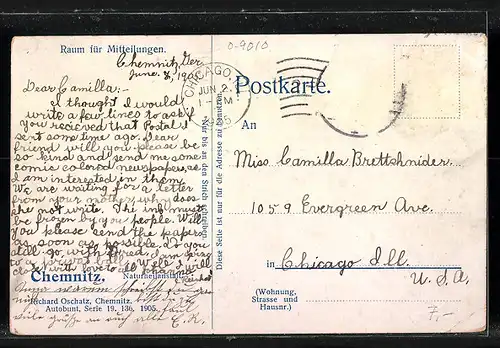 Raum für Mitteilungen.
0-9010
Chemnitz, Ger.
June. 8, 190
Dear Camilla:-
I thought I would
write a few lines to ask if
you recieved that Postal I
sent some time ago. Dear
friend will you please be
so kind and send me some
comic colored newspapers, as
I am interested in them.
We are waiting for a letter
from your mother, why does
she not write. The ink must
be frozen by you people. Will
you please send the papers
as soon as possible. Do you
still go with
with love to all
Chemnitz.
Anna warum schreibst du
Richard Oschatz, Chemnitz.
Autobunt, Serie 19, 136, 1905.
Grüße an euch alle E.R.
Diese Seite ist nur für die Adresse zu benutzen.
Nur bis an den Strich
CHICAGO,
JUN 2
1- M
Postkarte.
An
Miss Camilla Brettshnider.
1059 Evergreen Ave.
in Chicago Ill.
U.S.A.
(Wohnung,
Strasse und
Hausnr.)
7,-